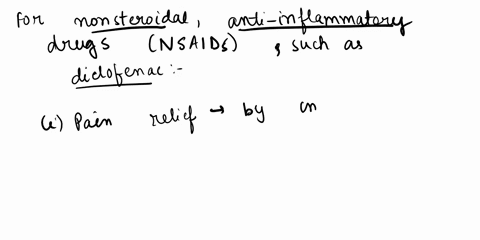 For nonsteroidal, anti-inflammatory
drugs (NSAIDs), such as
diclofenac:-
(i) Pain relief → by